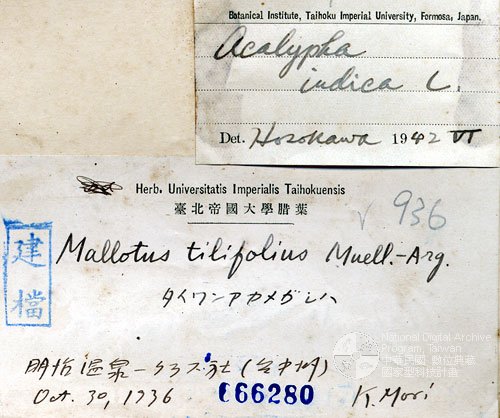 Botanical Institute, Taihoku Imperial University, Formosa, Japan.
Acalypha
indica L.
Det. Hosokawa 1942 VI
Herb. Universitatis Imperialis Taihokuensis
臺北帝國大學腊葉
936
建檔
Mallotus tilifolius Muell.-Arg.
タイワンアカメガシハ
明治温泉—久久ス社(台中州)
Oct. 30, 1936
066280
K. Mori
National Digital Archive
Program, Taiwan
中華民國 數位典藏
國家型科技計畫